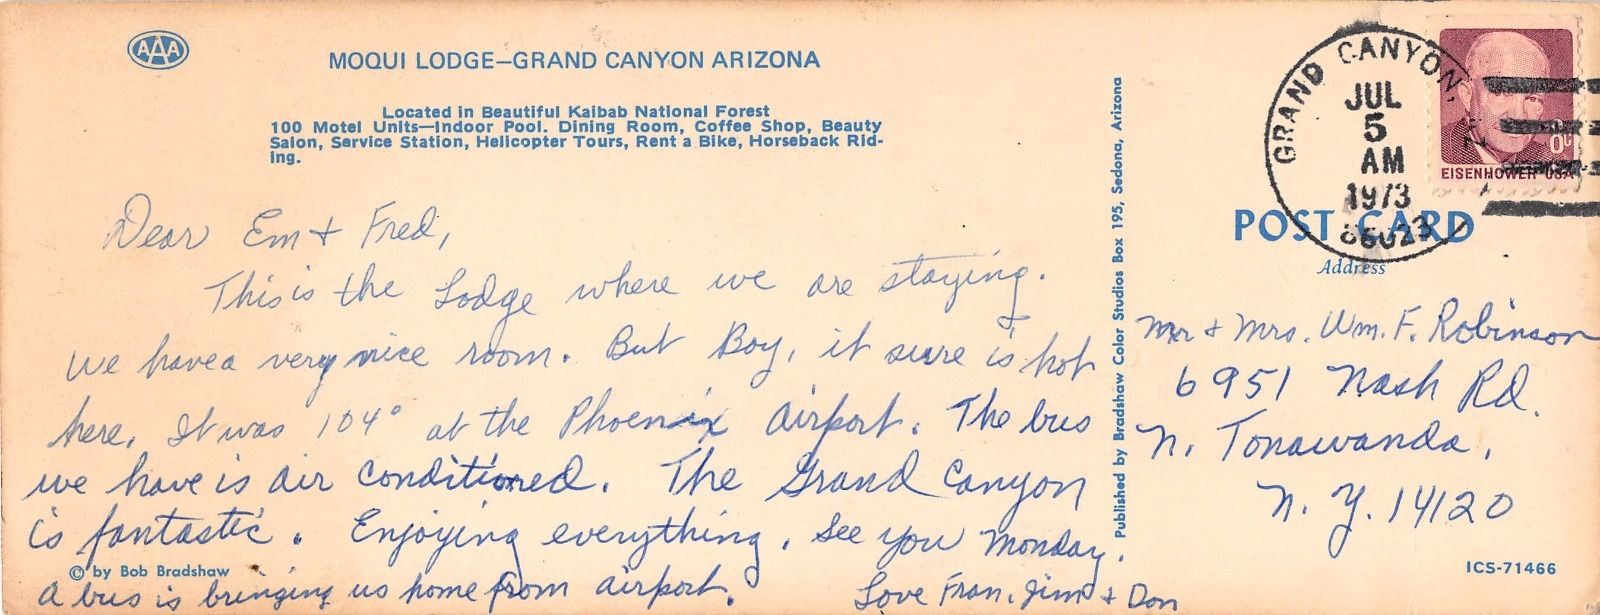 AAA
MOQUI LODGE—GRAND CANYON ARIZONA
Located in Beautiful Kaibab National Forest
100 Motel Units—Indoor Pool. Dining Room, Coffee Shop, Beauty
Salon, Service Station, Helicopter Tours, Rent a Bike, Horseback Rid-
ing.
Dear Em + Fred,
This is the Lodge where we are staying.
We have a very nice room. But Boy, it sure is hot
here. It was 104° at the Phoenix airport. The bus
we have is air conditioned. The Grand Canyon
is fantastic. Enjoying everything. See you Monday.
A bus is bringing us home from airport.
Love Fran, Jim + Don
© by Bob Bradshaw
Published by Bradshaw Color Studios Box 195, Sedona, Arizona
GRAND CANYON,
JUL
5
AM
1973
86023
EISENHOWER USA
POST CARD
Address
Mr + Mrs. Wm. F. Robinson
6951 Nash Rd.
N. Tonawanda,
N. Y. 14120
ICS-71466